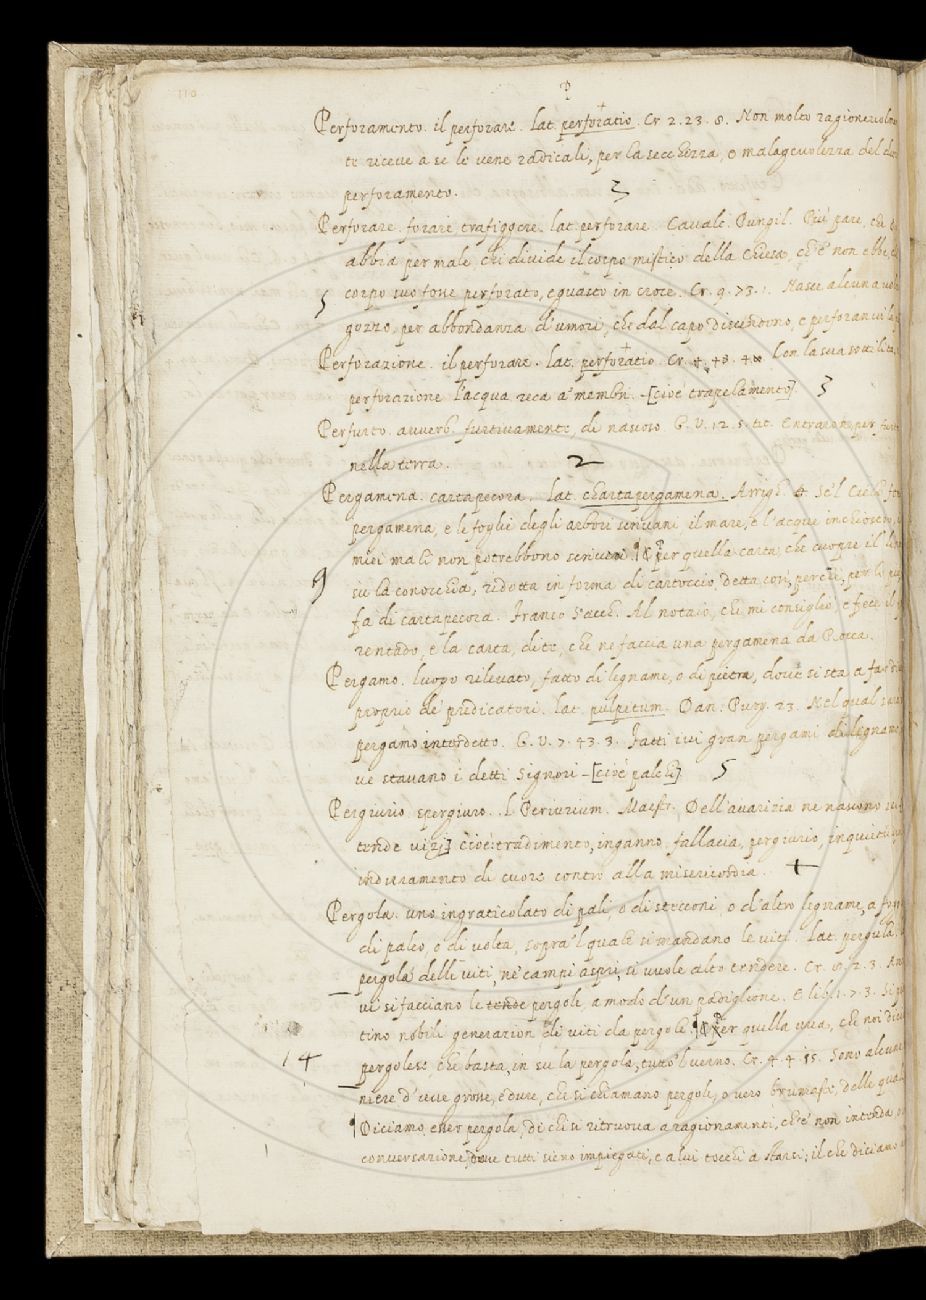 110
P
Perforamento. il perforare. Lat. perforatio. Cr. 2. 23. 8. Non molto
te riceve a se le vene radicali, per la secchezza, o malagevolezza del
perforamento.
3
Perforare. forare trafiggere. lat. perforare. Cavalc. Pungil. Più pare, che
abbia per male, chi divide il corpo mistico della Chiesa, ch'e' non ebbe,
corpo suo fosse perforato, e guasto in croce. Cr. 9. 73. 1. Nasce alcuna
gozzo, per abbondanza d'umori, che dal capo discendono, e perforan
Perforazione. il perforare. lat. perforatio. Cr. 4. 48. Con la sua sottilità,
perforazione l'acqua reca a' membri. -[cioè trapelamento]. 3
Perfurto. avverb. furtivamente, di nascoso. G. V. 12. 5. tit. Entraro per
nella terra. 2
Pergamena. cartapecora. lat. chartapergamena. Arrigh. Se'l Cielo
pergamena, e le foglie degli arbori scrivani il mare, e l'acque inchiostro,
miei mali non potrebbono scrivere. ¶ Per quella carta, che cuopre il
9
su la conocchia, ridotta in forma di cartoccio, detta così, perchè, per li
fa di cartapecora. Franco Sacch. Al notaio, che mi consigliò, e fece il
rentado, e la carta, dite, che ne faccia una pergamena da Rocca.
Pergamo. luogo rilevato, fatto di legname, o di pietra, dove si sta a far
proprio de' predicatori. lat. pulpitum. Dan. Purg. 23. Nel qual
pergamo interdetto. G. V. 7. 43. 3. Fatti ivi gran pergami di legname
ve stavano i detti Signori -[cioè palchi] 5
Pergiurio spergiuro. L. Periurium. Maestr. Dell'avarizia ne nascono
tende vizj] cioè: tradimento, inganno, fallacia, pergiurio,
induramento di cuore contro alla misericordia. +
Pergola. uno ingraticolato di pali, o di stecconi, o d'altro legname, a
di palco, o di volta, sopra'l quale si mandano le viti. lat. pergula.
pergola delle viti, ne' campi aspri, si vuole alto tendere. Cr. 2. 3.
vi si facciano le tende pergole, a modo d'un padiglione. E lib. 1. 7. 3.
tino nobili generazion di viti da pergole. ¶ Per quella uva, che noi
14
pergolese, che basta, in su la pergola, tutto'l verno. Cr. 4. 4. 15. Sono alcune
niere d'uve grosse, e dure, che si chiamano pergole, o vero brumaste, delle
¶ Diciamo esser pergola, di chi si ritruova a ragionamenti, ch'e' non intenda
conversazione, dove tutti sieno impiegati, e a lui tocchi a starsi; il che diciamo